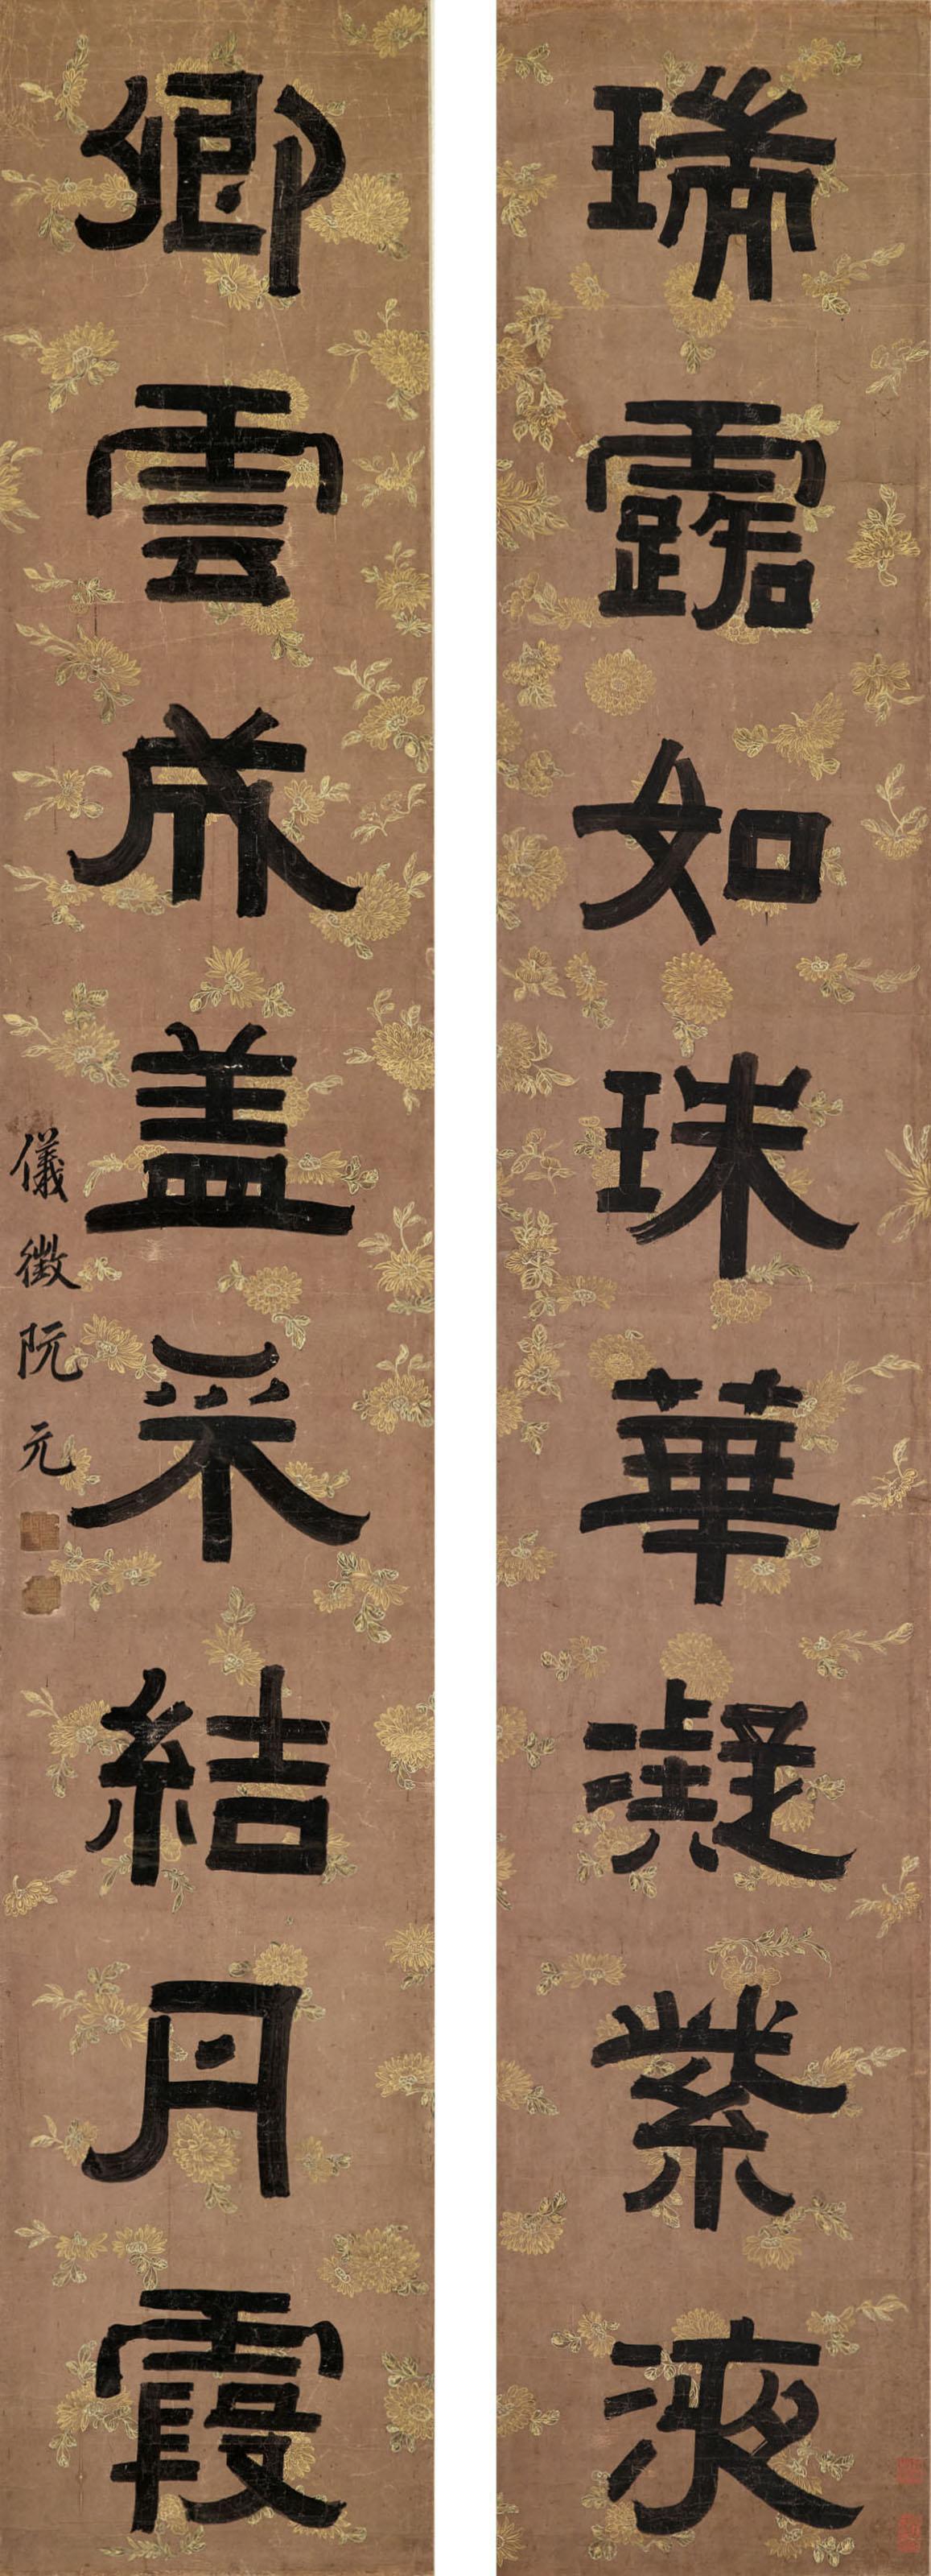 瑞露如珠華凝紫液
卿雲成盖采結月霞
儀徵阮元